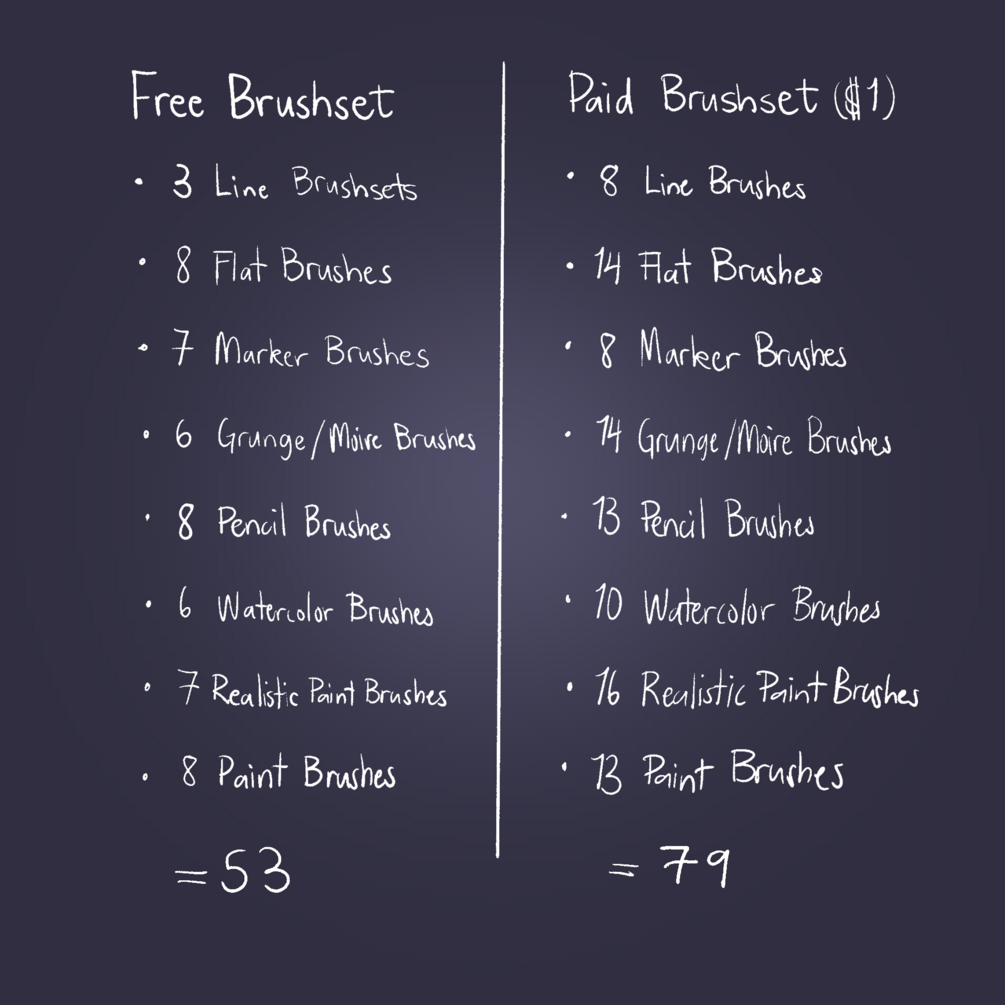 Free Brushset
• 3 Line Brushsets
• 8 Flat Brushes
• 7 Marker Brushes
• 6 Grunge/Moire Brushes
• 8 Pencil Brushes
• 6 Watercolor Brushes
• 7 Realistic Paint Brushes
• 8 Paint Brushes
= 53
Paid Brushset ($1)
• 8 Line Brushes
• 14 Flat Brushes
• 8 Marker Brushes
• 14 Grunge/Moire Brushes
• 13 Pencil Brushes
• 10 Watercolor Brushes
• 16 Realistic Paint Brushes
• 13 Paint Brushes
= 79